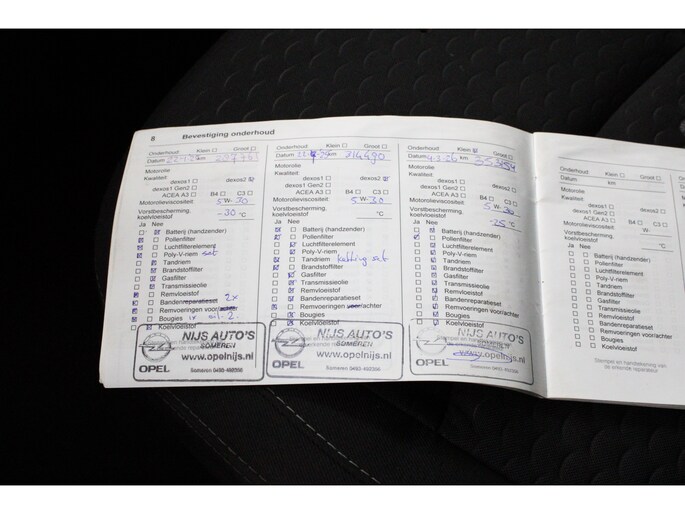 8 Bevestiging onderhoud
Onderhoud: Klein Groot
Datum km
Motorolie
Kwaliteit:
dexos1 dexos2
dexos1 Gen2
ACEA A3 B4 C3
Motorolieviscositeit 5 W- 30
Vorstbescherming, koelvloeistof -30 °C
Ja Nee
Batterij (handzender)
Pollenfilter
Luchtfilterelement
Poly-V-riem set
Tandriem
Brandstoffilter
Gasfilter
Transmissieolie
Remvloeistof
Bandenreparatieset 2x
Remvoeringen voor/achter
Bougies
Koelvloeistof
NIJS AUTO'S
SOMEREN
www.opelnijs.nl
OPEL Someren 0493-492366
Onderhoud: Klein Groot
Datum km 314490
Motorolie
Kwaliteit:
dexos1 dexos2
dexos1 Gen2
ACEA A3 B4 C3
Motorolieviscositeit 5 W- 30
Vorstbescherming, koelvloeistof °C
Ja Nee
Batterij (handzender)
Pollenfilter
Luchtfilterelement
Poly-V-riem
Tandriem ketting set
Brandstoffilter
Gasfilter
Transmissieolie
Remvloeistof
Bandenreparatieset
Remvoeringen voor/achter
Bougies
Koelvloeistof
NIJS AUTO'S
SOMEREN
www.opelnijs.nl
OPEL Someren 0493-492366
Onderhoud: Klein Groot
Datum km
Motorolie
Kwaliteit:
dexos1 dexos2
dexos1 Gen2
ACEA A3 B4 C3
Motorolieviscositeit 5 W- 30
Vorstbescherming, koelvloeistof -25 °C
Ja Nee
Batterij (handzender)
Pollenfilter
Luchtfilterelement
Poly-V-riem
Tandriem
Brandstoffilter
Gasfilter
Transmissieolie
Remvloeistof
Bandenreparatieset
Remvoeringen voor/achter
Bougies
Koelvloeistof
NIJS AUTO'S
SOMEREN
www.opelnijs.nl
OPEL Someren 0493-492366
Onderhoud: Klein
Datum km
Motorolie
Kwaliteit:
dexos1
dexos1 Gen2
ACEA A3 B4
Motorolieviscositeit W-
Vorstbescherming, koelvloeistof °C
Ja Nee
Batterij (handzender)
Pollenfilter
Luchtfilterelement
Poly-V-riem
Tandriem
Brandstoffilter
Gasfilter
Transmissieolie
Remvloeistof
Bandenreparatieset
Remvoeringen voor/achter
Bougies
Koelvloeistof
Stempel en handtekening van
de erkende reparateur